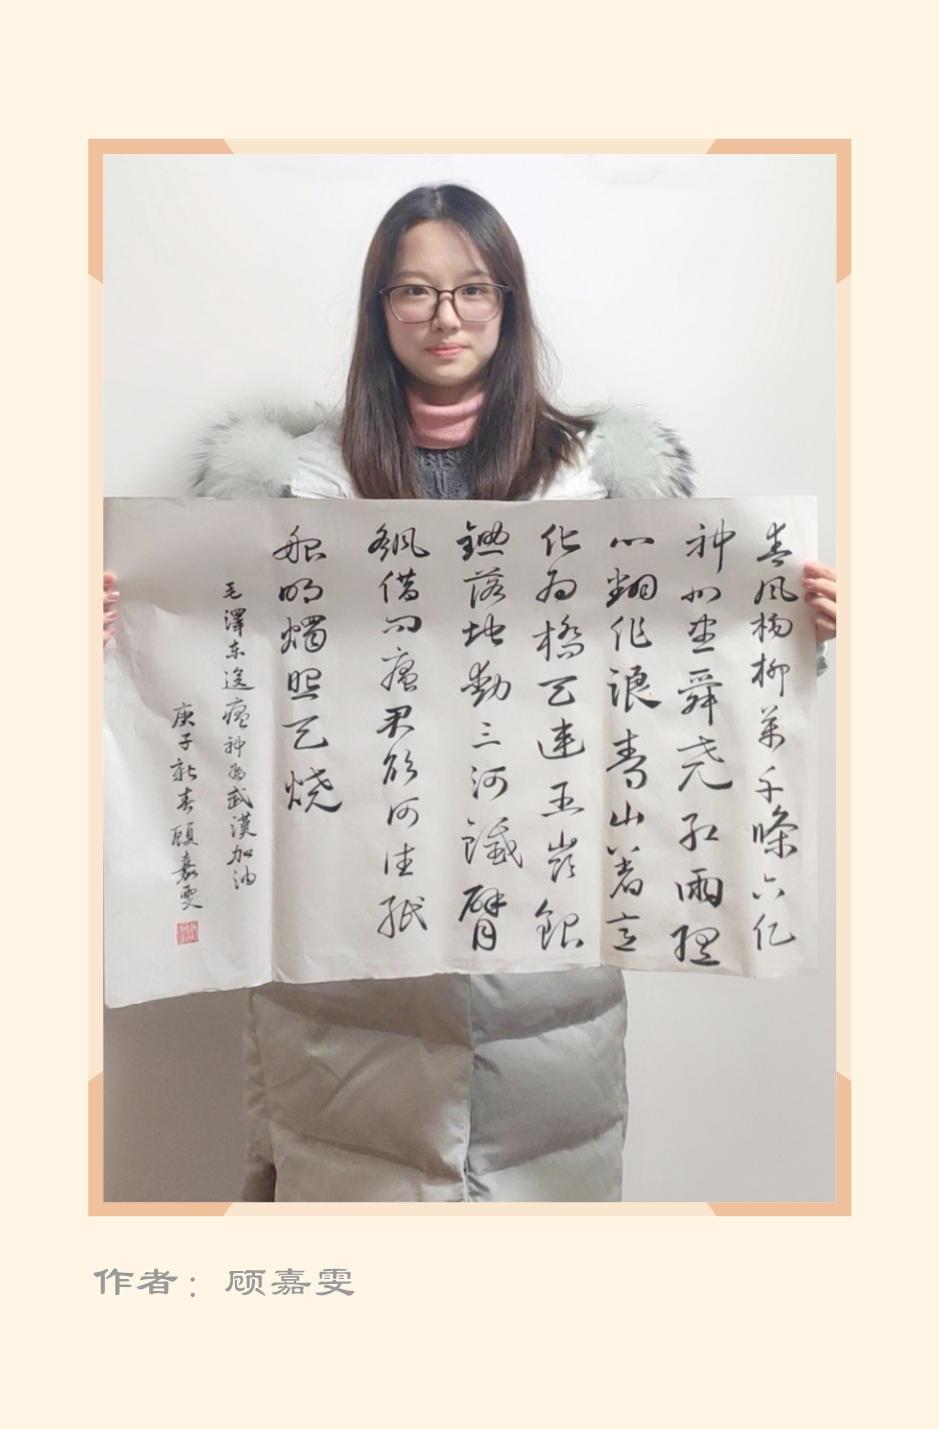 春风杨柳萬千條六亿
神州尽舜尧红雨随
心翻作浪青山着意
化为橋天连五嶺銀
鋤落地動三河鐵臂
颻借问瘟君欲何往纸
船明燭照天燒
毛澤东送瘟神为武漢加油
庚子新春顾嘉雯
作者：顾嘉雯